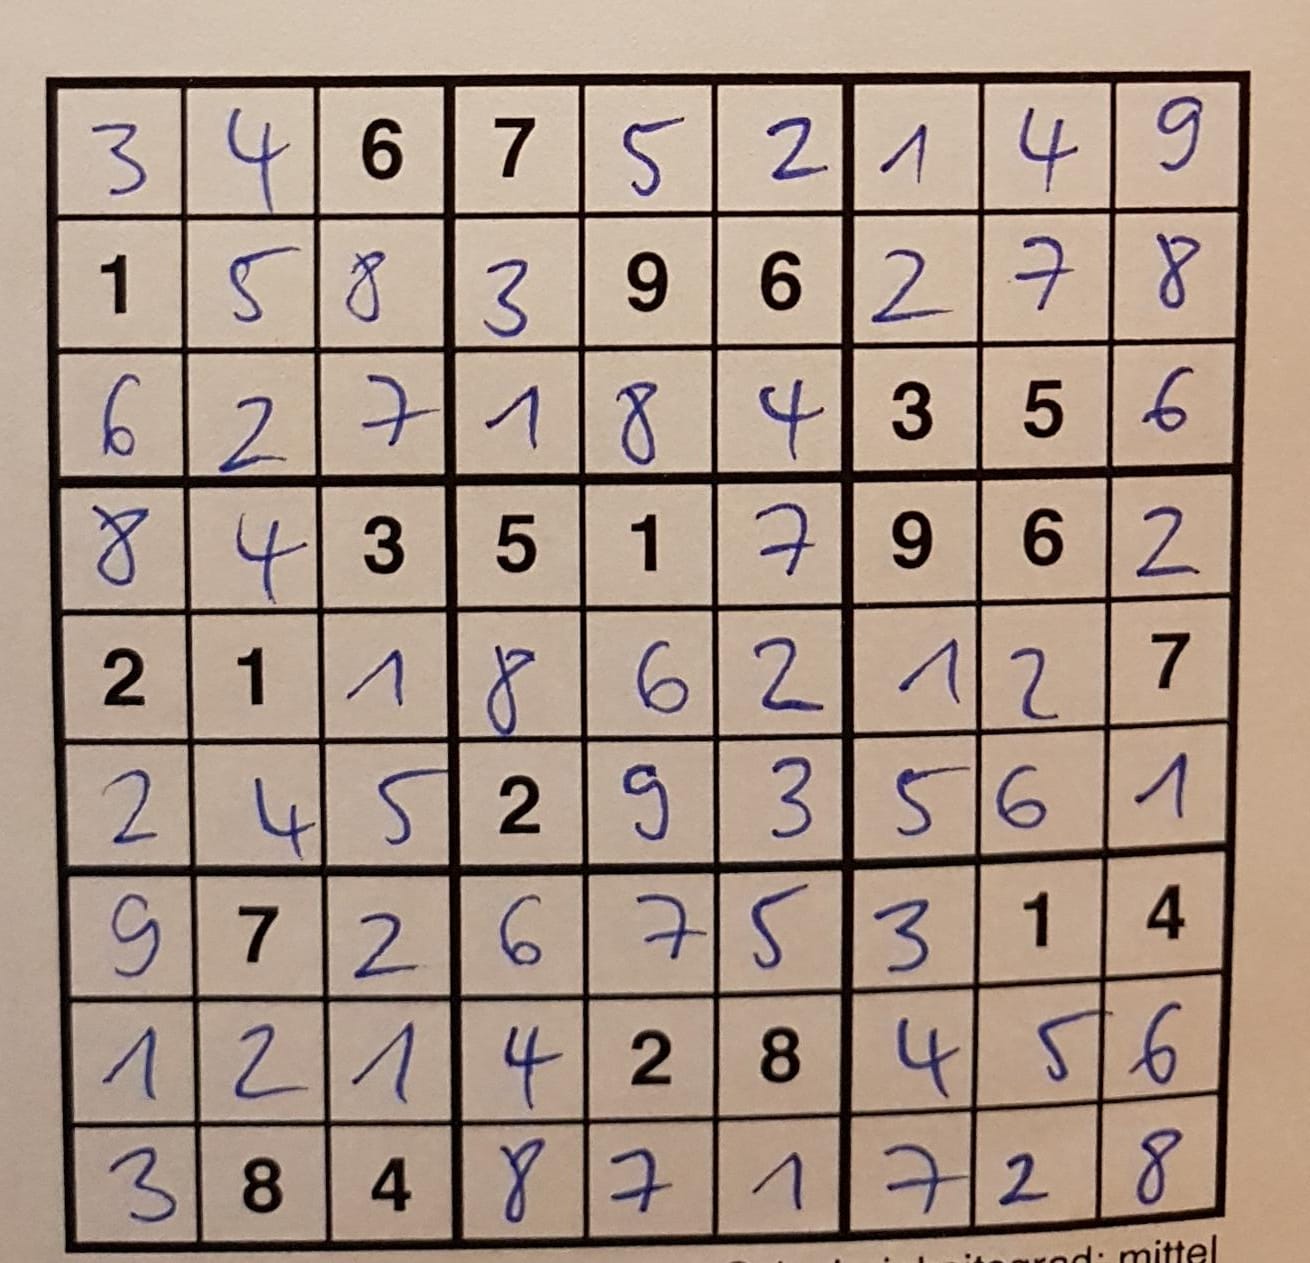 3 4 6 7 5 2 1 4 9
1 5 8 3 9 6 2 7 8
6 2 7 1 8 4 3 5 6
8 4 3 5 1 7 9 6 2
2 1 1 8 6 2 1 2 7
2 4 5 2 9 3 5 6 1
9 7 2 6 7 5 3 1 4
1 2 1 4 2 8 4 5 6
3 8 4 8 7 1 7 2 8
mittel